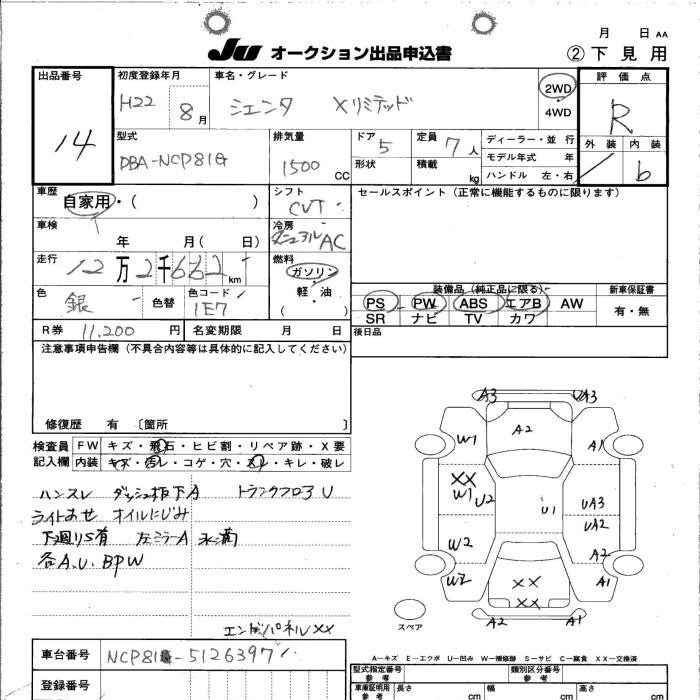 JU オークション出品申込書
月 日 AA
② 下見用
出品番号
14
初度登録年月
H22 8月
車名・グレード
シエンタ Xリミテッド
2WD
4WD
評価点
R
外装 内装
b
型式
DBA-NCP81G
排気量
1500 CC
ドア 5
形状
定員 7人
積載 kg
ディーラー・並行
モデル年式 年
ハンドル 左・右
車歴
自家用・( )
車検
年 月( 日)
走行
12万2千662km
色
銀
色替
色コード
1E7
R券 11,200 円
名変期限 月 日
シフト
CVT
冷房
マニュアルAC
燃料
ガソリン
軽・油
( )
セールスポイント(正常に機能するものに限ります)
装備品(純正品に限る)
PS PW ABS エアB AW
SR ナビ TV カワ
新車保証書
有・無
後日品
注意事項申告欄(不具合内容等は具体的に記入してください)
修復歴 有 〔箇所 〕
検査員記入欄
FW キズ・飛石・ヒビ割・リペア跡・X要
内装 キズ・汚レ・コゲ・穴・スレ・キレ・破レ
ハンスレ ダッシュ板下A トランクフロアU
ライトあせ オイルにじみ
下廻りS有 左ミラーA 水滴
各A.U.BPW
エンドパネルXX
A3 A3
A2
W1 A1
XX
W1 U2
U1
UA3
UA2
W2 A2
W2 A1
XX
XX
A2 A1
スペア
A−キズ E−エクボ U−凹み W−補修跡 S−サビ C−腐食 XX−交換済
車台番号
NCP81-5126397
登録番号
型式指定番号
類別区分番号
車庫証明用参考
長さ cm
幅 cm
高さ cm